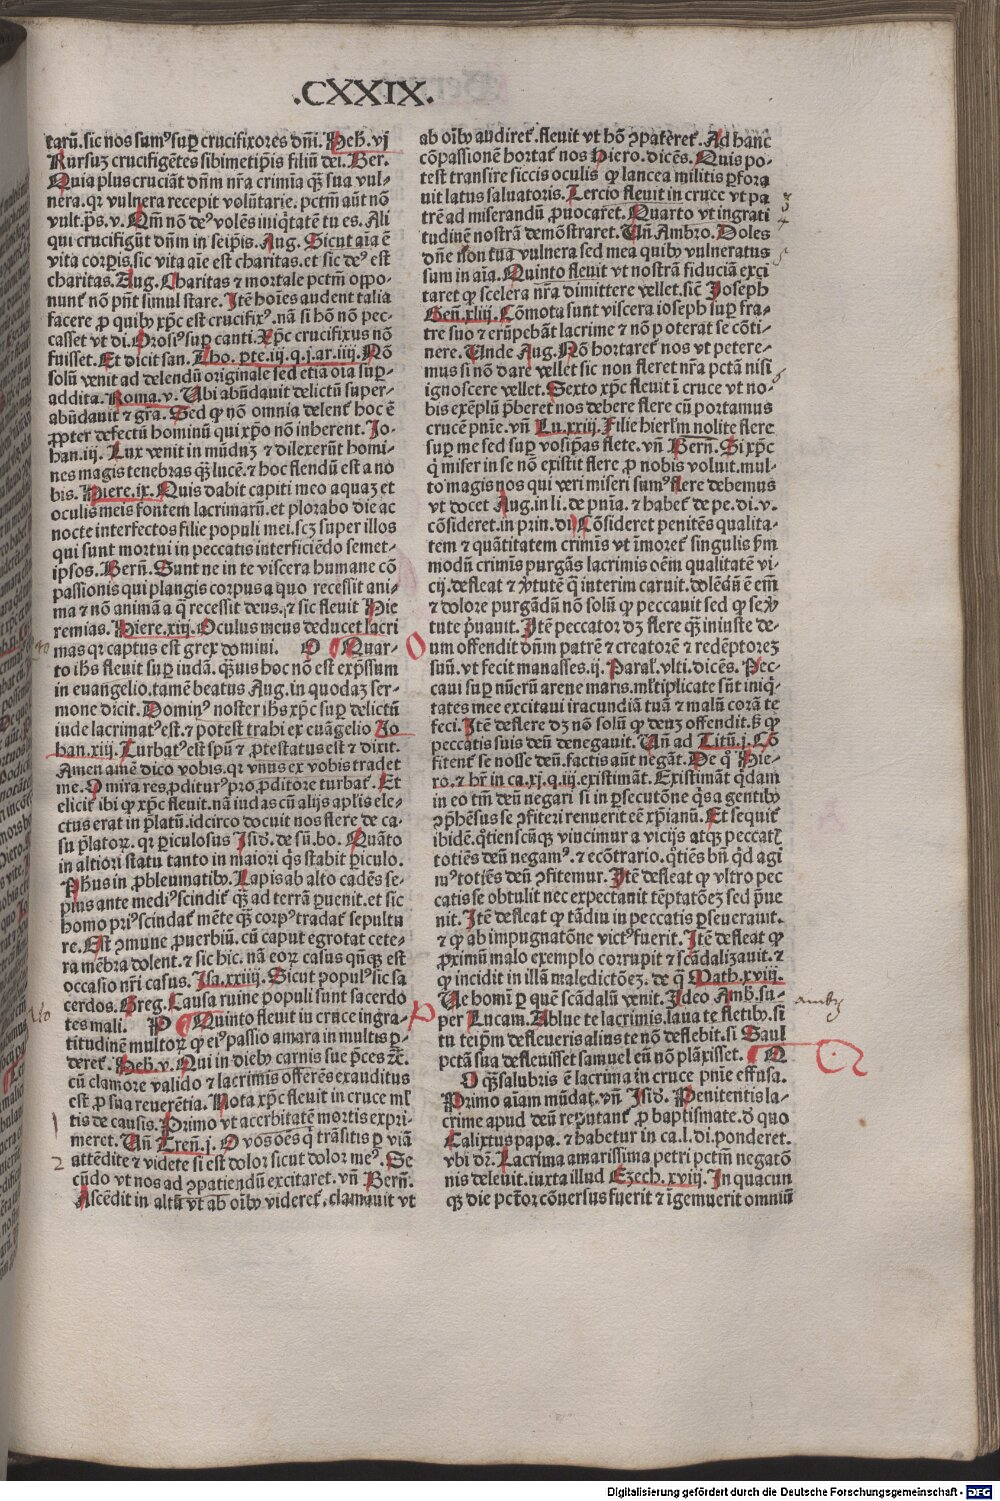 .CXXIX.
tarū. sic nos sumꝰ suꝑ crucifixores dn̄i. Heb̄. vj
Rursuz crucifigētes sibimetip̄is filiū dei. Ber.
Quia plus cruciāt dn̄m nr̄a crimīa qꝫ̄ sua vul⸗
nera. qꝛ vulnera recepit volūtarie. pctm̄ aūt nō
vult. p̄s. v. Qm̄ nō deꝰ volēs iniq̇tatē tu es. Ali
qui crucifigūt dn̄m in seip̄is. Aug. Sicut aīa ē
vita corp̄is. sic vita aīe est charitas. et sic deꝰ est
charitas. Aug. Charitas ⁊ mortale pctm̄ oppo⸗
nunt̄ nō pn̄t simul stare. Itē hoīes audent talia
facere ꝓ quibꝰ xp̄c est crucifixꝰ. nā si hō nō pec⸗
casset vt di. Orosiꝰ suꝑ canti. Xp̄c crucifixus nō
fuisset. Et dicit san. Tho. ꝑte. iij. q. j. ar. iiij. Nō
solū venit ad delendū originale sed etiā oīa suꝑ⸗
addita. Roma. v. Ubi abūdauit delictū super⸗
abūdauit ⁊ gr̄a. Sed ꝙ nō omnia delent̄ hoc ē
ꝓpter defectū hominū qui xp̄o nō inherent. Jo⸗
han. iij. Lux venit in mūduꝫ ⁊ dilexerūt homi⸗
nes magis tenebras qꝫ̄ lucē. ⁊ hoc flendū est a no
bis. Hiere. ix. Quis dabit capiti meo aquaꝫ et
oculis meis fontem lacrimarū. et plorabo die ac
nocte interfectos filie populi mei. scꝫ super illos
qui sunt mortui in peccatis interficiēdo semet⸗
ipsos. Bern̄. Sunt ne in te viscera humane cō
passionis qui plangis corpus a quo recessit ani⸗
ma ⁊ nō animā a q̄ recessit deus. ⁊ sic fleuit Hie
remias. Hiere. xiij. Oculus meus deducet lacri
mas qꝛ captus est grex domini. O ¶ Quar⸗
to ihs̄ fleuit suꝑ iudā. qꝫ̄uis hoc nō est exp̄ssum
in euangelio. tamē beatus Aug. in quodaꝫ ser⸗
mone dicit. Dominꝰ noster ihs̄ xp̄c suꝑ delictū
iude lacrimatꝰ est. ⁊ potest trahi ex euāgelio Jo
han. xiij. Turbatꝰ est spū ⁊ ꝓtestatus est ⁊ dixit.
Amen amē dico vobis. qꝛ vnus ex vobis tradet
me. O mira res. ꝓditur pro ꝓditore turbat̄. Et
elicit̄ ibi ꝙ xp̄c fleuit. nā iudas cū alijs apl̄is ele⸗
ctus erat in p̄latū. idcirco docuit nos flere de ca⸗
su p̄latoꝝ. qꝛ ꝑiculosus Isid̄. de sū. bo. Quāto
in altiori statu tanto in maiori q̇s stabit ꝑiculo.
Ph̄us in ꝓbleumatibꝰ. Lapis ab alto cadēs se⸗
pius ante mediꝰ scindit̄ qꝫ̄ ad terrā ꝑuenit. et sic
homo priꝰ scindat̄ mēte qꝫ̄ corpꝰ tradat̄ sepultu
re. Est ꝯmune ꝓuerbiū. cū caput egrotat cete⸗
ra mēbra dolent. ⁊ sic hic. nā eoꝝ casus qn̄qꝫ est
occasio nr̄i casus. Isa. xxiiij. Sicut ꝓpulꝰ sic sa
cerdos. Greg. Causa ruine populi sunt sacerdo
tes mali. P ¶ Quinto fleuit in cruce ingra⸗
titudinē multoꝝ ꝙ eiꝰ passio amara in multis ꝑ⸗
deret̄. Heb̄. v. Qui in diebꝰ carnis sue p̄ces ⁊c̄.
cū clamore valido ⁊ lacrimis offerēs exauditus
est ꝓ sua reuerētia. Nota xp̄c fleuit in cruce ml̄
tis de causis. Primo vt acerbitatē mortis expri⸗
meret. Un̄ Tren̄. j. O vos oēs q̇ trāsitis ꝑ viā
attēdite ⁊ videte si est dolor sicut dolor meꝰ. Se
cūdo vt nos ad ꝯpatiendū excitaret. vn̄ Bern̄.
Ascēdit in altū vt ab oībꝰ videret̄. clamauit vt
ab oībꝰ audiret̄. fleuit vt hō ꝯpateret̄. Ad hanc
cōpassionē hortat̄ nos Hiero. dicēs. Quis po⸗
test transire siccis oculis ꝙ lancea militis ꝑfora
uit latus saluatoris. Tercio fleuit in cruce vt pa
trē ad miserandū ꝓuocaret. Quarto vt ingrati
tudinē nostrā demōstraret. Un̄ Ambro. Doles
dn̄e non tua vulnera sed mea quibꝰ vulneratus
sum in aīa. Quinto fleuit vt nostrā fiduciā exci
taret ꝙ scelera nr̄a dimittere vellet. sicut̄ Joseph
Gen̄. xliij. Cōmota sunt viscera ioseph suꝑ fra⸗
tre suo ⁊ erūpebāt lacrime ⁊ nō poterat se cōti⸗
nere. Unde Aug. Nō hortaret̄ nos vt petere⸗
mus si nō dare vellet sic non fleret nr̄a pctā nisi
ignoscere vellet. Sexto xp̄c fleuit ī cruce vt no⸗
bis exēplū p̄beret nos debere flere cū portamus
crucē pn̄ie. vn̄ Lu. xxiij. Filie hierlm̄ nolite flere
suꝑ me sed suꝑ vosip̄as flete. vn̄ Bern̄. Si xp̄c
q̇ miser in se nō existit flere ꝓ nobis voluit. mul⸗
to magis nos qui veri miseri sumꝰ flere debemus
vt docet Aug. in li. de pn̄ia. ⁊ habet̄ de pe. di. v.
cōsideret. in prin. di. Cōsideret penitēs qualita⸗
tem ⁊ quātitatem crimīs vt īmoret̄ singulis ẜm
modū crimīs purgās lacrimis oēm qualitatē vi⸗
cij. defleat ⁊ v̓tutē q̄ interim caruit. dolēdū ē em̄
⁊ dolore purgādū nō solū ꝙ peccauit sed ꝙ se v̓
tute p̄uauit. Itē peccator dꝫ flere qꝫ iniuste de⸗
um offendit dn̄m patrē ⁊ creatorē ⁊ redēptoreꝫ
suū. vt fecit manasses. ij. Paral̄. vlti. dicēs. Pec⸗
caui suꝑ nūerū arene maris. ml̄tiplicate sūt iniq̇⸗
tates mee excitaui iracundiā tuā ⁊ malū corā te
feci. Itē deflere dꝫ nō solū ꝙ deuꝫ offendit. sꝫ ꝙ
peccatis suis deū denegauit. Un̄ ad Titū. j. Cō
fitent̄ se nosse deū. factis aūt negāt. De qͦ Hie⸗
ro. ⁊ hr̄ in ca. xj. q. iij. existimāt. Existimāt q̇dam
in eo tm̄ deū negari si in ꝑsecutōne q̇s a gentibꝰ
ꝯp̄hēsus se ꝯfiteri renuerit eē xp̄ianū. Et sequit̄
ibidē. q̇tienscūqꝫ vincimur a vicijs atqꝫ peccatꝭ
totiēs deū negamꝰ. ⁊ ecōtrario. q̇tiēs bn̄ q̇d agi
mꝰ totiēs deū ꝯfitemur. Itē defleat ꝙ vltro pec
catis se obtulit nec expectauit tēptatōeꝫ sed p̄ue
nit. Itē defleat ꝙ tādiu in peccatis ꝑseuerauit.
⁊ ꝙ ab impugnatōne victꝰ fuerit. Itē defleat ꝙ
ꝓximū malo exemplo corrupit ⁊ scādalizauit. ⁊
ꝙ incidit in illā maledictōeꝫ. de q̄ Math. xviij.
Ue homī ꝑ quē scādalū venit. Ideo Amb. su⸗
per Lucam. Ablue te lacrimis. laua te fletibꝰ. si
tu teip̄m defleueris alius te nō deflebit. si Saul
pctā sua defleuisset samuel eū nō plāxisset. ¶ Q
O qꝫ̄ salubris ē lacrima in cruce pn̄ie effusa.
Primo aīam mūdat. vn̄ Isid̄. Penitentis la⸗
crime apud deū reputant̄ ꝓ baptismate. ꝺ quo
Calixtus papa. ⁊ habetur in ca. l. di. ponderet.
vbi dr̄. Lacrima amarissima petri pctm̄ negatō
nis deleuit. iuxta illud Ezech. xviij. In quacun
qꝫ die pctōr cōuersus fuerit ⁊ īgemuerit omniū
O
P
Q
1
2
Digitalisierung gefördert durch die Deutsche Forschungsgemeinschaft - DFG